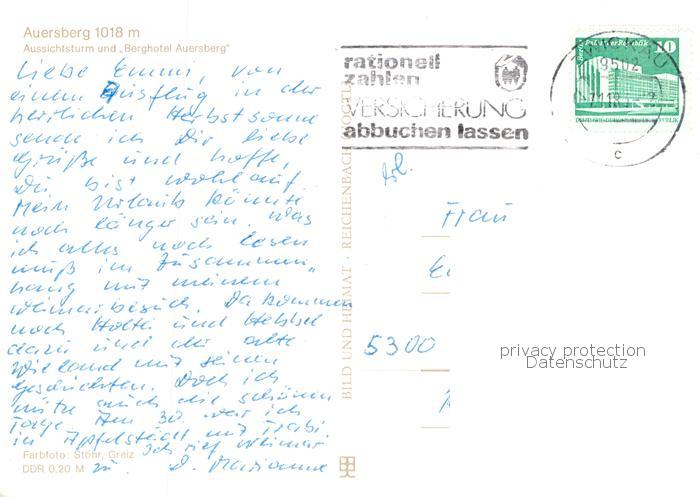 Auersberg 1018 m
Aussichtsturm und „Berghotel Auersberg"
Liebe Emmi, von
einem Ausflug in der
herrlichen Herbstsonne
sende ich Dir liebe
Grüße und hoffe,
Du bist wohlauf.
Mein Urlaub könnte
noch länger sein. Was
ich alles noch lesen
muß im Zusammen-
hang mit meinem
Weimarbesuch. Da kommen
noch Holtei und Hebbel
dazu und der alte
Wieland mit seinen
Geschichten. Doch ich
nütze auch die schönen
Tage. Am 30. war ich
in Apfelstädt mit Trabi
Ich rief Weimar
an. D. Marianne
Farbfoto: Stöhr, Greiz
DDR 0,20 M
BILD UND HEIMAT · REICHENBACH
rationell
zahlen
VERSICHERUNG
abbuchen lassen
ZWICKAU
9502
c
10
Frau
5300
privacy protection
Datenschutz